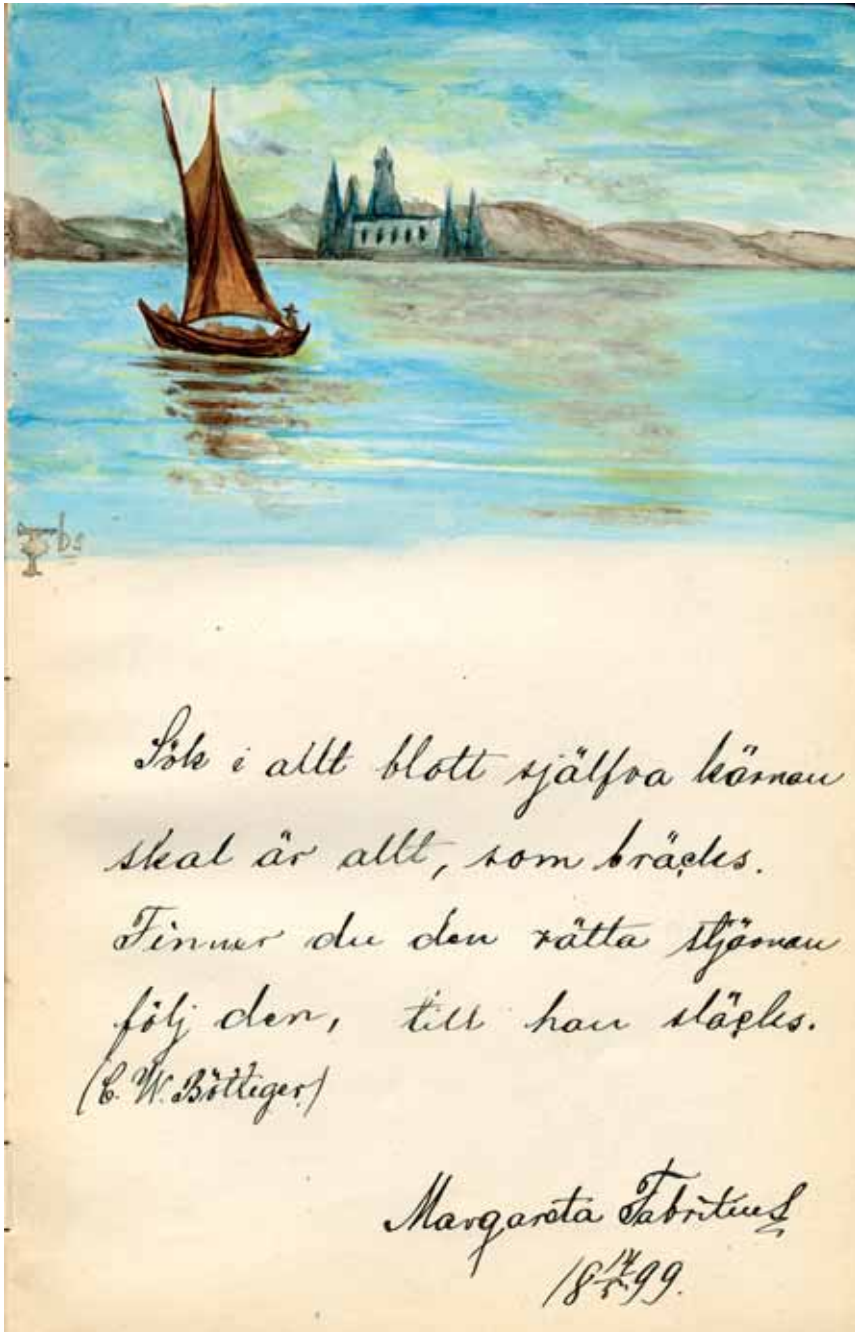 bs
Sök i allt blott själfva kärnan
skal är allt, som bräcks.
Finner du den rätta stjärnan
följ den, till han släcks.
(C. W. Böttiger)
Margareta Fabritius
18 99.